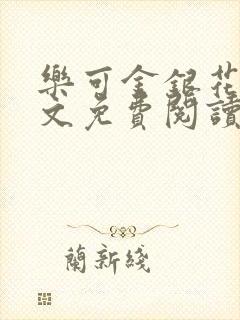 樂可金銀花
文免費閱讀
蘭新綫